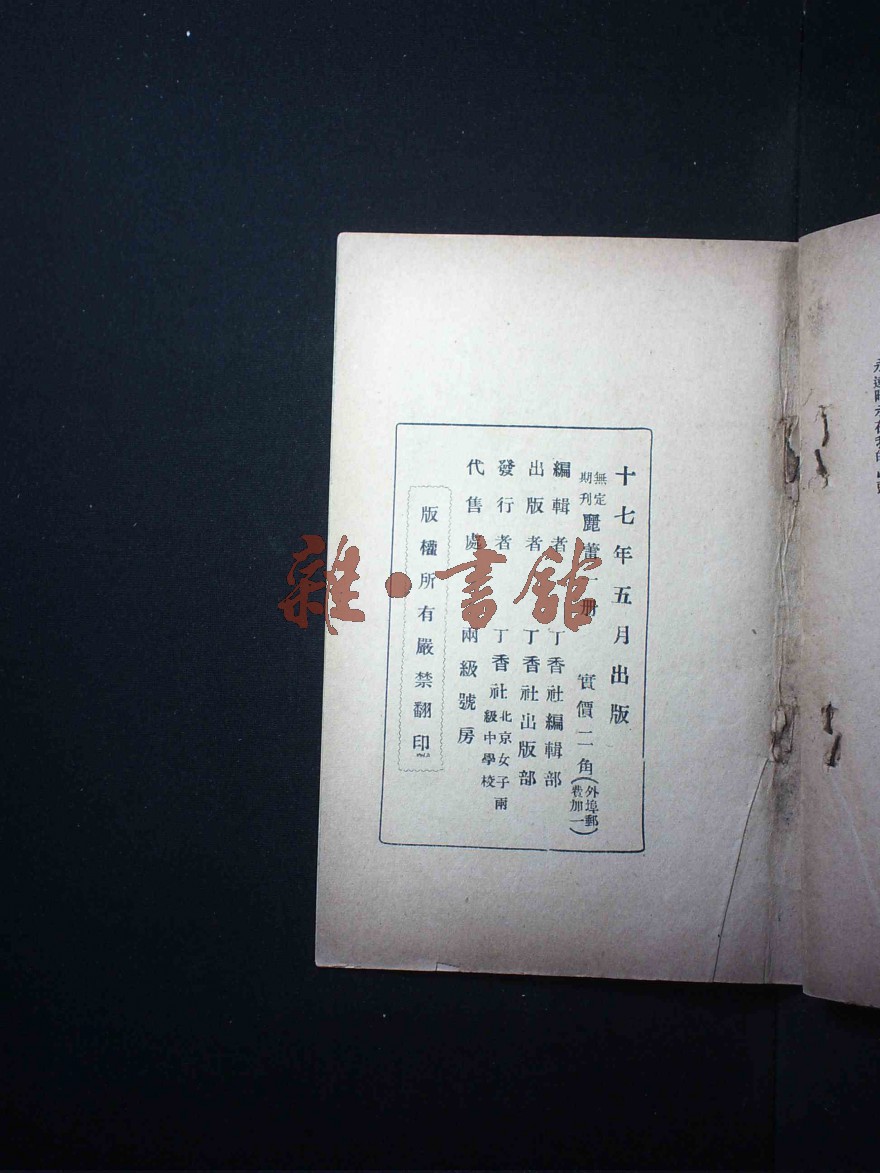 十七年五月出版
無定期刊 麗蕾一册 實價二角(外埠郵費加一)
編輯者 丁香社編輯部
出版者 丁香社出版部
發行者 丁香社 北京女子兩級中學校
代售處 兩級號房
版權所有嚴禁翻印
雜·書館